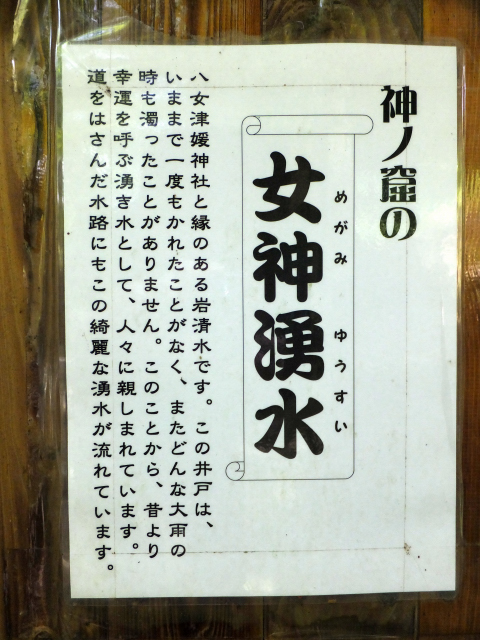 神ノ窟の
めがみ ゆうすい
女神湧水
八女津媛神社と縁のある岩清水です。この井戸は、
いままで一度もかれたことがなく、またどんな大雨の
時も濁ったことがありません。このことから、昔より
幸運を呼ぶ湧き水として、人々に親しまれています。
道をはさんだ水路にもこの綺麗な湧水が流れています。